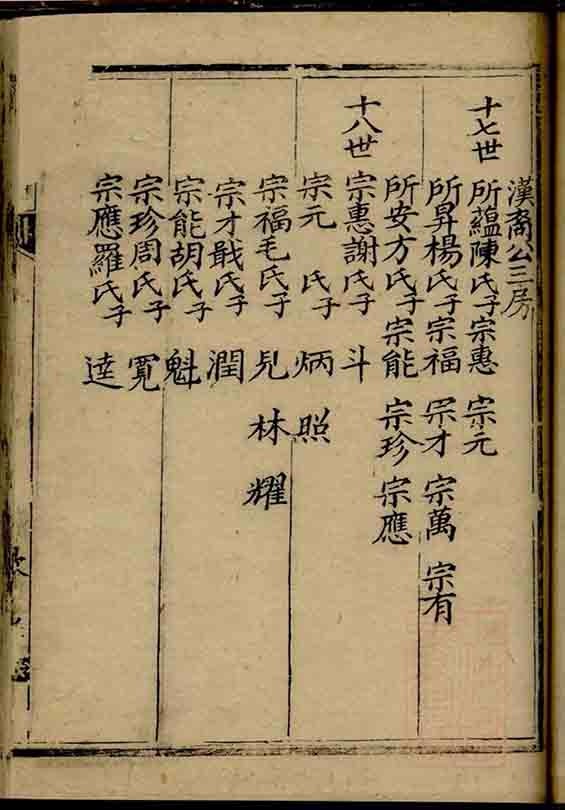 漢裔公三房
十七世 所蘊陳氏子 宗惠 宗元
所昇楊氏子 宗福 宗才 宗萬 宗有
所安方氏子 宗能 宗珍 宗應
十八世 宗惠謝氏子 斗
宗元 氏子 炳 照
宗福毛氏子 兒 林 耀
宗才戢氏子 潤
宗能胡氏子 魁
宗珍周氏子 寬
宗應羅氏子 達